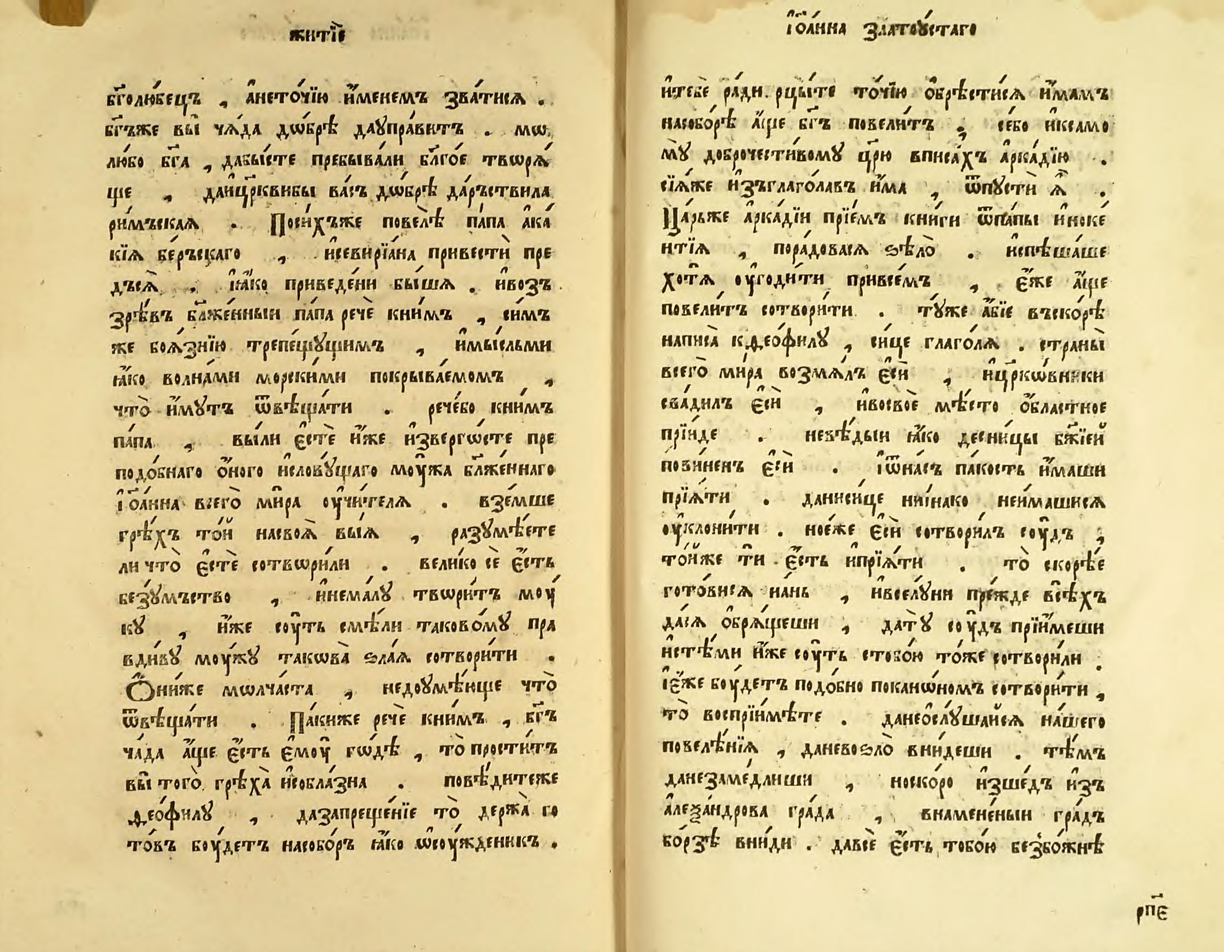 житїе
бг҃олюбецъ , анеточїю и҆менемъ зватися .
бг҃ъже вы чѧда дѡбрѣ дауправитъ . мѡ
любо бг҃а , дабысте пребывали бл҃гое творѧ
ще , даицр҃квибы васъ дѡбрѣ даръствила
римъская . Посихъже повелѣ папа ака
кїѧ беръскаго , исевирїана привести пре
дъсѧ . ꙗ҆ко приведени бышѧ . ивоз
зрѣвъ бл҃женныи папа рече книмъ , симъ
же боязнїю трепещущимъ , имысльми
ꙗ҆ко волнами морскими покрываемомъ ,
что имутъ ѿвѣщати . речебо книмъ
папа , выли єсте иже извергѡсте пре
подобнаго оного исловущаго моужа бл҃женнаго
їоанна всего мира оучителѧ . вземше
грѣхъ той насвоѧ выѧ , разумѣете
ли что єсте сотвѡрили . велико се єсть
безумъство , инемалу твѡритъ моу
ку , иже соуть смѣли таковому пра
вдиву моужу такѡва ѕлаѧ сотворити .
Ѻниже мѡлчаста , недоумѣюще что
ѿвѣщати . Пакиже рече книмъ , бг҃ъ
чада аще єсть ємоу гѡдѣ , то проститъ
вы того грѣха исоблазна . повѣдитеже
ѳеофилу , дазапрещенїе то держа го
товъ боудетъ насоборъ ꙗ҆ко ѡсоужденикъ .
їоанна златоустаго
итебе ради . рцыте точїю обрѣстисѧ имамъ
насоборѣ аще бг҃ъ повелитъ . себо иксамо
му доброчестивому цр҃ю вписахъ аркадїю .
сїѧже изъглаголавъ има , ѿпусти ѧ .
Царьже аркадїи прїемъ книги ѿпапы иноке
нтїѧ , порадовасѧ ѕѣло . испѣшаше
хотѧ оугодити привсемъ , єже аще
повелитъ сотворити . туже абїе въскорѣ
написа кѳеофилу , сице глаголѧ . страны
всего мира возмѧлъ єси , ицр҃кѡвники
свадилъ єси , ивосвое мѣсто областное
прїиде . невѣдыи ꙗ҆ко десницы бж҃їеи
повиненъ єси . їѡнасъ пакость имаши
прїѧти . данисице нинако неимашисѧ
оуклонити . ноєже єси сотворилъ соудъ ,
тоиже ти єсть ипрїѧти . то скорѣе
готовисѧ нань , ивселуни прежде всѣхъ
дасѧ обрѧщеши , дату соудъ прїимеши
истѣми иже соуть стобою тоже сотворили .
їєже боудетъ подобно поканѡномъ сотворити ,
то воспрїимѣте . данеослушайсѧ нашего
повелѣнїѧ , даневоѕло внидеши . тѣмъ
данезамедлиши , носкоро изшедъ изъ
алеѯандрова града , внамененыи градъ
борзѣ вниди . давсе єсть тобою безбожнѣ
рп҃є